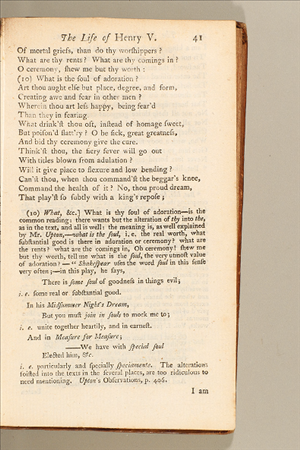 The Life of Henry V. 41
Of mortal griefs, than do thy worſhippers ?
What are thy rents ? What are thy comings in ?
O ceremony, ſhew me but thy worth :
(10) What is the ſoul of adoration ?
Art thou aught elſe but place, degree, and form,
Creating awe and fear in other men ?
Wherein thou art leſs happy, being fear'd
Than they in fearing.
What drink'ſt thou oft, inſtead of homage ſweet,
But poiſon'd flatt'ry ? O be ſick, great greatneſs,
And bid thy ceremony give thee care.
Think'ſt thou, the fiery fever will go out
With titles blown from adulation ?
Will it give place to flexure and low bending ?
Can'ſt thou, when thou command'ſt the beggar's knee,
Command the health of it ? No, thou proud dream,
That play'ſt ſo ſubtly with a king's repoſe ;
(10) What, &c.] What is thy ſoul of adoration—is the
common reading : there wants but the alteration of thy into the,
as in the text, and all is well : the meaning is, as well explained
by Mr. Upton,—what is the ſoul, i. e. the real worth, what
ſubſtantial good is there in adoration or ceremony ? what are
the rents ? what are the comings in, Oh ceremony ! ſhew me
but thy worth, tell me what is the ſoul, the very utmoſt value
of adoration ? — " Shakeſpear uſes the word ſoul in this ſenſe
very often ;—in this play, he ſays,
There is ſome ſoul of goodneſs in things evil ;
i. e. ſome real or ſubſtantial good.
In his Midſummer Night's Dream,
But you muſt join in ſouls to mock me to ;
i. e. unite together heartily, and in earneſt.
And in Meaſure for Meaſure ;
——We have with ſpecial ſoul
Elected him, &c.
i. e. particularly and ſpecially
The alterations
foiſted into the texts in the ſeveral places, are too ridiculous to
need mentioning. Upton's Obſervations, p. 406.
I am